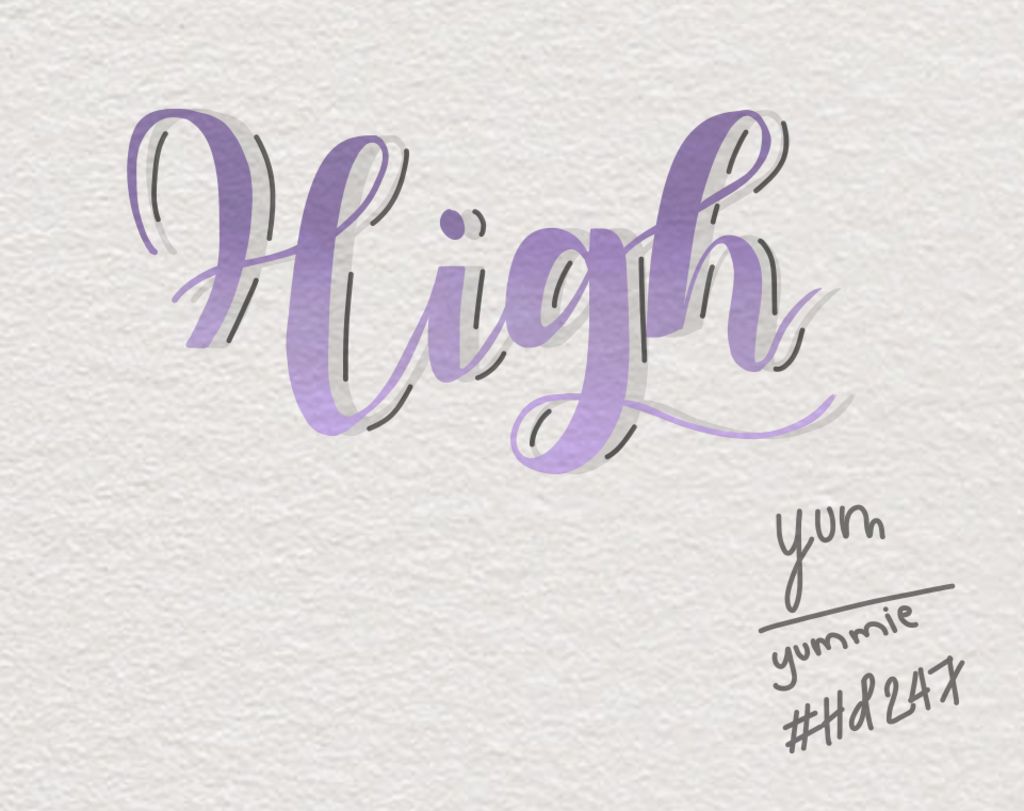 High
yum
yummie
#Hd247